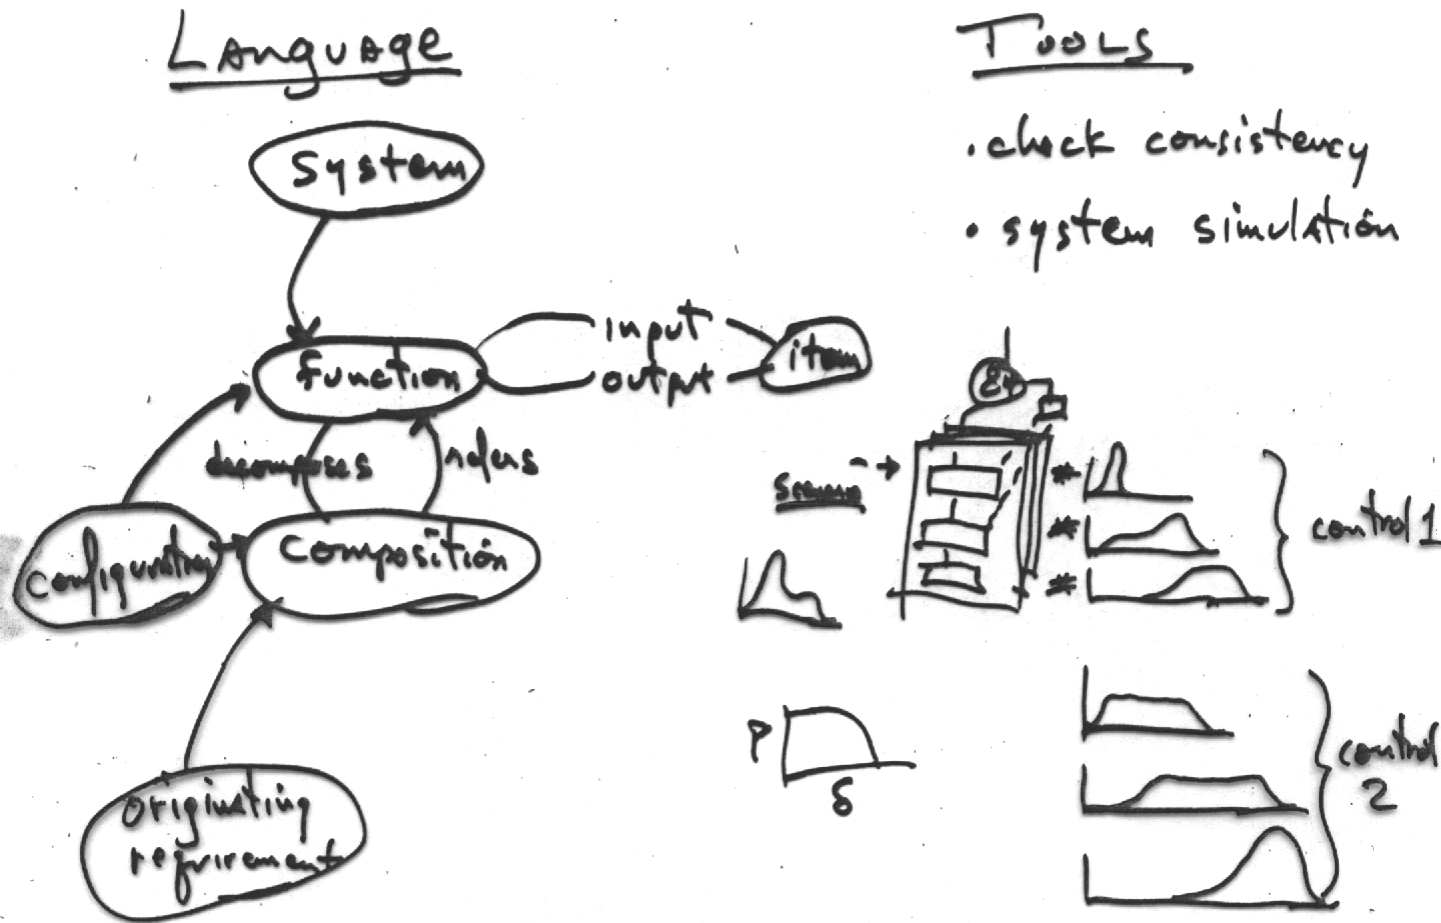 Language
system
function
input
output
item
decomposes
configuration
composition
originating
requirement
Tools
• check consistency
• system simulation
Scenario
control 1
P
δ
control
2